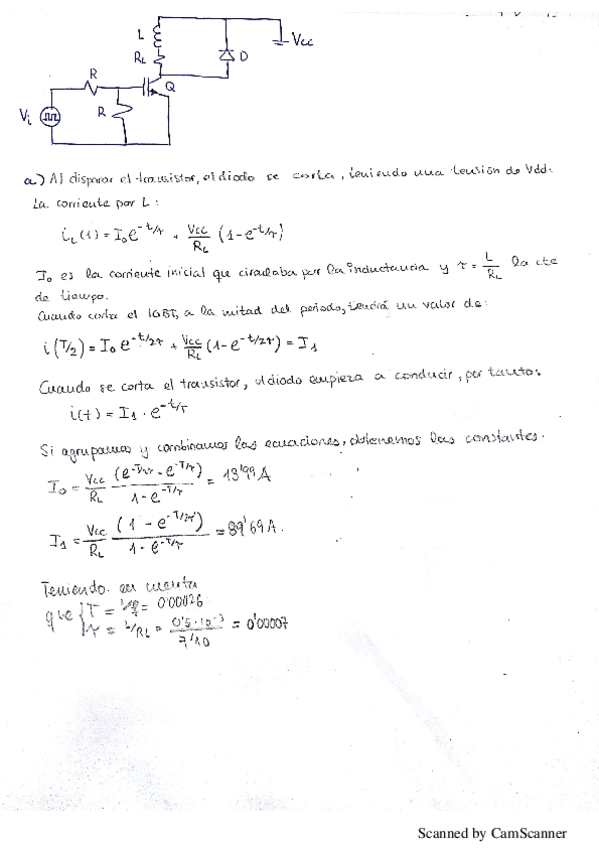 L
RL
D
Vcc
R
Q
Vi
R
a) Al disparar el transistor, el diodo se corta, teniendo una tensión de Vdd.
La corriente por L:
iL(t) = I₀e^(-t/τ) + Vcc/RL (1-e^(-t/τ))
I₀ es la corriente inicial que circulaba por la inductancia y τ = L/RL la cte
de tiempo.
Cuando corta el IGBT, a la mitad del periodo, tendrá un valor de:
i(T/2) = I₀ e^(-t/2τ) + Vcc/RL (1-e^(-t/2τ)) = I₁
Cuando se corta el transistor, el diodo empieza a conducir, por tanto:
i(t) = I₁ · e^(-t/τ)
Si agrupamos y combinamos las ecuaciones, obtenemos las constantes.
I₀ = Vcc/RL (e^(-T/2τ) - e^(-T/τ))/(1-e^(-T/τ)) = 13'99 A
I₁ = Vcc/RL (1-e^(-T/2τ))/(1-e^(-T/τ)) = 89'69 A.
Teniendo en cuenta
que { T = 1/f = 0'00026
τ = L/RL = = 0'00007
Scanned by CamScanner